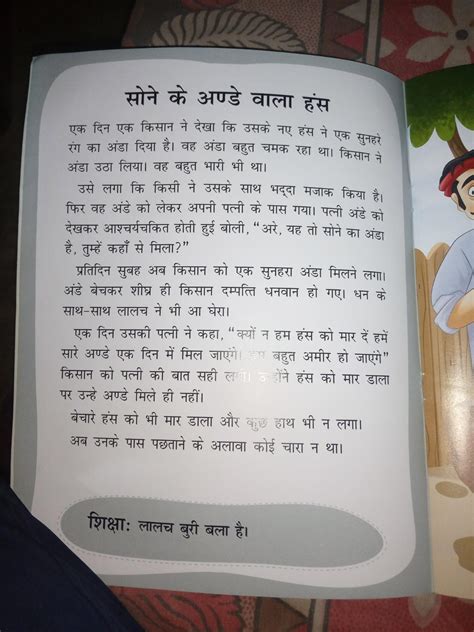 सोने के अण्डे वाला हंस
एक दिन एक किसान ने देखा कि उसके नए हंस ने एक सुनहरे
रंग का अंडा दिया है। वह अंडा बहुत चमक रहा था। किसान ने
अंडा उठा लिया। वह बहुत भारी भी था।
उसे लगा कि किसी ने उसके साथ भद्दा मजाक किया है।
फिर वह अंडे को लेकर अपनी पत्नी के पास गया। पत्नी अंडे को
देखकर आश्चर्यचकित होती हुई बोली, “अरे, यह तो सोने का अंडा
है, तुम्हें कहाँ से मिला?”
प्रतिदिन सुबह अब किसान को एक सुनहरा अंडा मिलने लगा।
अंडे बेचकर शीघ्र ही किसान दम्पत्ति धनवान हो गए। धन के
साथ-साथ लालच ने भी आ घेरा।
एक दिन उसकी पत्नी ने कहा, “क्यों न हम हंस को मार दें हमें
सारे अण्डे एक दिन में मिल जाएंगे। बहुत अमीर हो जाएंगे”
किसान को पत्नी की बात सही हंस को मार डाला
पर उन्हे अण्डे मिले ही नहीं।
बेचारे हंस को भी मार डाला और कुछ हाथ भी न लगा।
अब उनके पास पछताने के अलावा कोई चारा न था।
शिक्षा: लालच बुरी बला है।